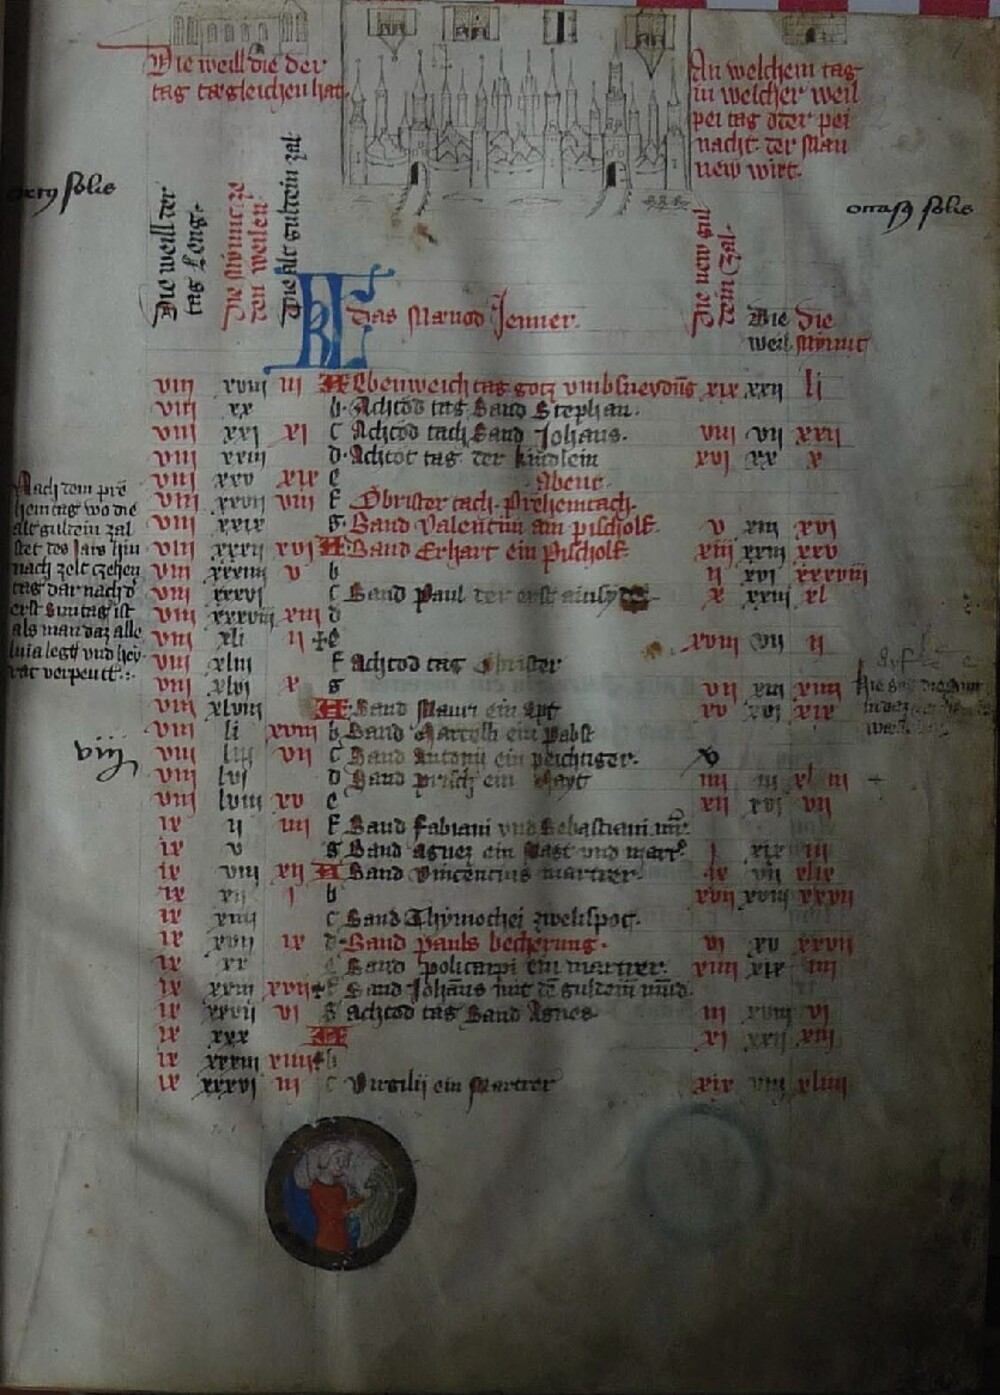 Die weill die der
tag tægleichen hat
An welchem tag
in welcher weil
pei tag oder pei
nacht der Man
new wirt.
solis
occasus solis
Die weill der
tag Leng.
Die Mynnt
ren weilen
Die alt guldein zal
Die new gul
dein zal.
KL Das Manod Jenner.
Die weil
Die Mynnt
viii xviii iii A Ebenweich tag gotz umbsneydung xix xxii li
viii xx b Achtod tag Sand Stephan.
viii xxi xi c Achtod tach Sand Johans. viii vii xxii
viii xxiii d Achtot tag der kindlein xvi xx x
viii xxv xix e Abent
viii xxvii viii f Obrister tach. Prehemtach.
viii xxix g Sand Valentin ain pischolf v xiii xvi
viii xxxii xvi A Sand Erhart ein Pischolf xiii xxiii xxv
viii xxxiiii v b ii xvi xxxviii
viii xxxvi c Sand Paul der erst ainsydel x xxiii xl
viii xxxviii xiii d
viii xli ii e xviii vii ii
viii xliii f Achtod tag Obrister
viii xlvi x g vii xiii xiiii
viii xlviii A Sand Mauri ein Apt xv xvi xix
viii li xviii b Sand Marcelli ein pabst
viii liii vii c Sand Antonii ein peichtiger.
viii lvi d Sand Prisch ein Mayt iiii iii xl iii
viii lviii xv e xii xvi vii
ix ii iiii f Sand Fabiani und Sebastiani
ix v g Sand Agnez ein Mayt und i xix iii
ix viii xii A Sand Vincencius martrer. ix vii xlix
ix xii i b xvii xviii xxvii
ix xiiii c Sand Thymothei zwelfpot.
ix xvii ix d Sand Pauls becherung. vi xv xxvii
ix xx e Sand policarpi ein martrer. xiiii xix iiii
ix xxiii xvii f Sand Johans mit dem guldein mund.
ix xxvii vi g achtod tag Sand Agnes iii xviii vi
ix xxx A xi xxii xiii
ix xxxiii xiiii b
ix xxxvi iii c Virgilii ein Martrer xix viii xliii
Nach dem pre
hem tag wo die
alt guldein zal
stet des Jars hin
nach zelt czehen
tag dar nach der
erst Suntag ist
als man daz alle
luia legt und hey
rat verpeutt
viij